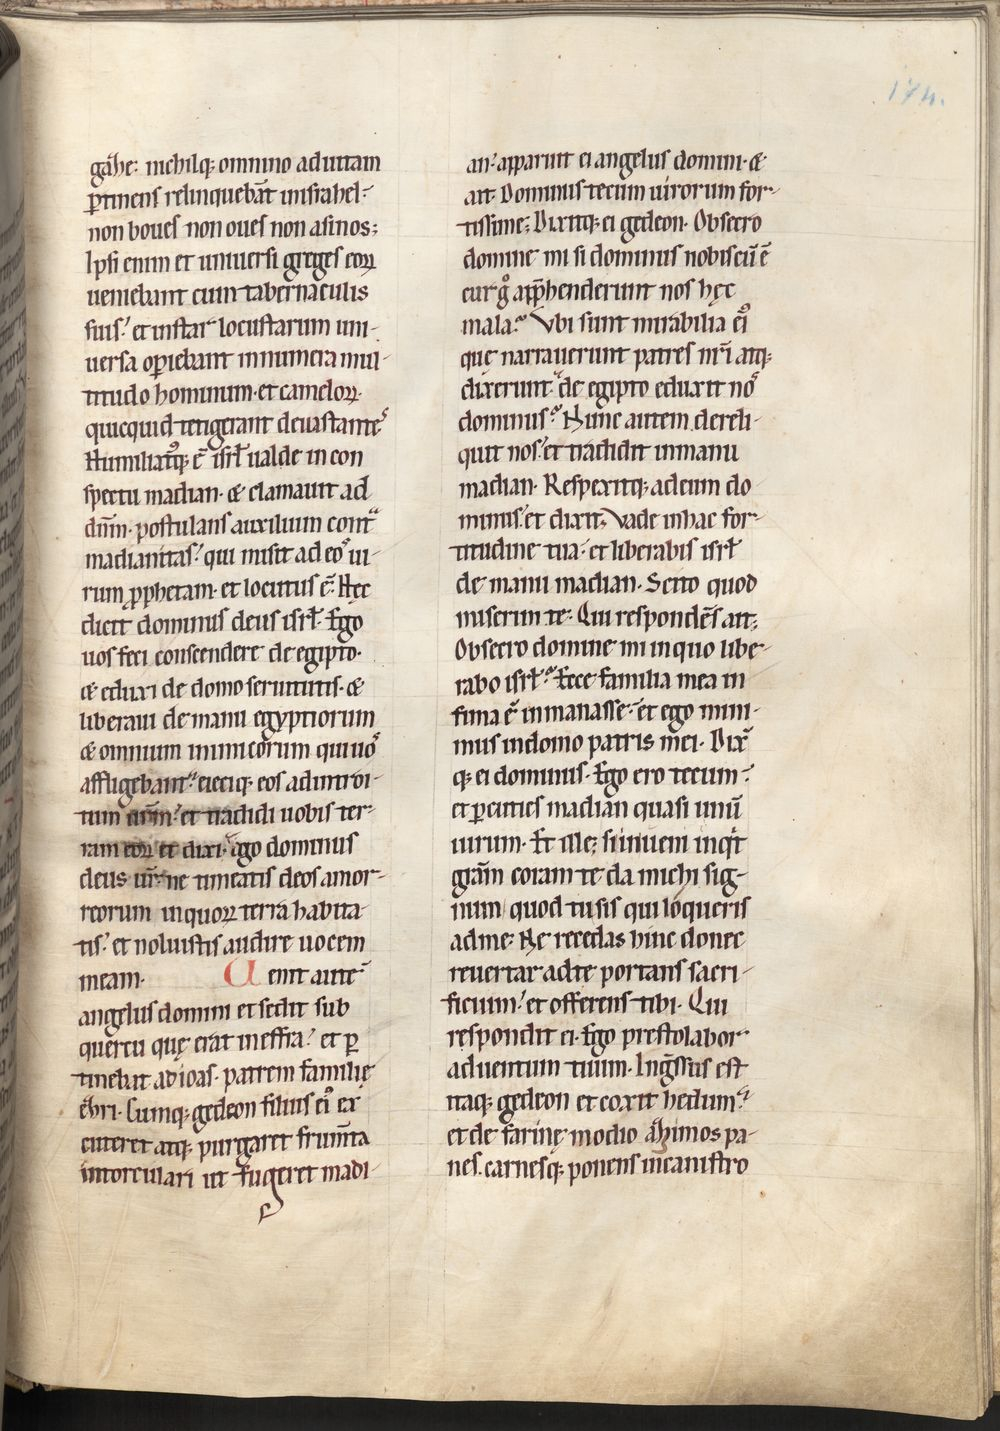 174.
gaȝhe: nichilq; omnino aduitam
ꝑtinens relinquebāt inisrahel:
non boues non oues non asinos;
Ipsi enim et uniuersi greges eoꝝ
ueniebant cum tabernaculis
suis: et instar locustarum uni-
uersa opiebant innumera mul-
titudo hominum. et cameloꝝ.
quicquid tetigerant deuastantes
Humiliatusq; ē isrł ualde in con
spectu madian. & clamauit ad
dn̄m. postulans auxilium contra
madianitas: qui misit ad eos ui-
rum ꝓphetam. et locutus ē: Hęc
dicit dominus deus isrł. Ego
uos feci conscendere de egipto.
& eduxi de domo seruitutis. &
liberaui de manu egyptiorum
& omnium inimicorum qui uos
affligebant: eiecique eos ad introi-
tum urm̄: et tradidi uobis ter-
ram eoꝝ et dixi. ego dominus
deus ur̄: ne timeatis deos amor-
reorum in quoꝝ terra habita-
tis: et noluistis audire uocem
meam. Uenit autē
angelus domini et sedit sub
quercu quę erat in effra: et ꝑ
tinebat ad ioas. patrem familię
eȝri. Cumq; gedeon filius ei9 ex
cuteret atq; purgaret frum̄ta
in torculari ut fugeret madi-
an: apparuit ei angelus domini. &
ait. Dominus tecum uirorum for-
tissime; Dixitq; ei gedeon. Obsecro
domine mi si dominus nobiscū ē
cur gͦ apphenderunt nos hęc
mala: Vbi sunt mirabilia ei9
que narrauerunt patres nr̄i atq;
dixerunt: de egipto eduxit nos
dominus: Nunc autem dereli-
quit nos: et tradidit in manu
madian. Respexitq; ad eum do
minus: et dixit; Vade in hac for-
titudine tua: et liberabis isrł
de manu madian. Scito quod
miserim te. Qui respondēs ait;
Obsecro domine mi in quo libe-
rabo isrł: Ecce familia mea in
fima ē in manasse: et ego mini-
mus in domo patris mei. Dixit
q; ei dominus. Ego ero tecum:
et ꝑcuties madian quasi unū
uirum. Et ille; si inueni inqͥt
gr̄am coram te da michi sig-
num quod tu sis qui loqueris
ad me: Ne recedas hinc donec
reuertar ad te portans sacri-
ficium: et offerens tibi. Qui
respondit ei. Ego prestolabor
aduentum tuum. Ingr̄ssus est
itaq; gedeon et coxit hedum:
et de farinę modio aȝimos pa-
nes. carnesq; ponens in canistro